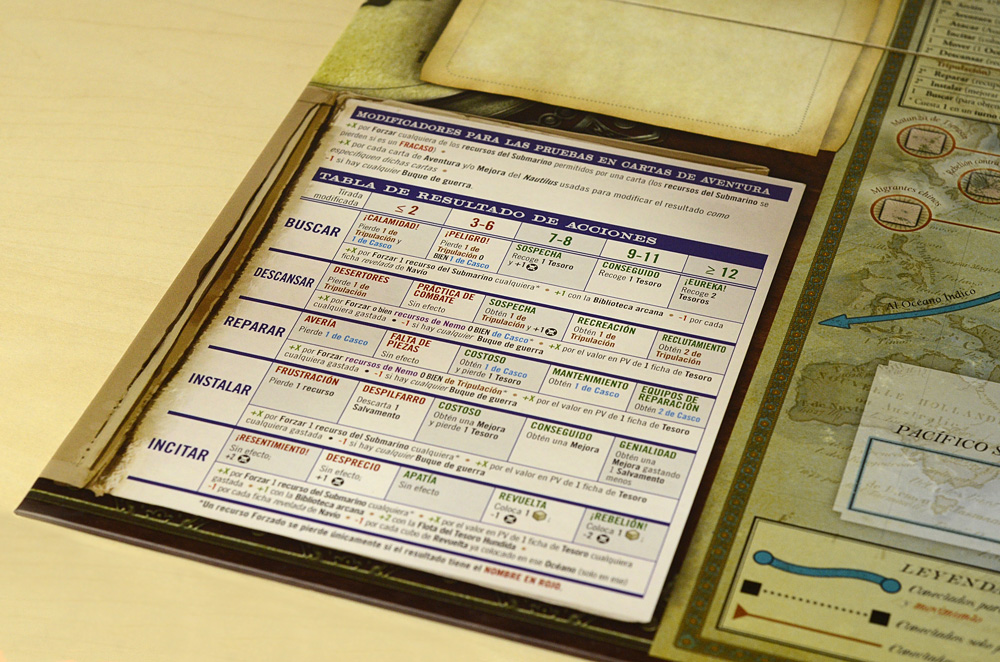 MODIFICADORES PARA LAS PRUEBAS EN CARTAS DE AVENTURA
+X por Forzar cualquiera de los recursos del Submarino permitidos por una carta (los recursos del Submarino se
pierden si es un FRACASO)
+X por cada carta de Aventura y/o Mejora del Nautilus usadas para modificar el resultado como
especifiquen dichas cartas
-1 si hay cualquier Buque de guerra.
TABLA DE RESULTADO DE ACCIONES
Tirada modificada
≤ 2
3-6
7-8
9-11
≥ 12
BUSCAR
¡CALAMIDAD!
Pierde 1 de
Tripulación y
1 de Casco
¡PELIGRO!
Pierde 1 de
Tripulación O
BIEN 1 de Casco
SOSPECHA
Recoge 1 Tesoro
y +1
CONSEGUIDO
Recoge 1 Tesoro
¡EUREKA!
Recoge 2
Tesoros
+X por Forzar 1 recurso del Submarino cualquiera* • +1 con la Biblioteca arcana • -1 por cada
ficha revelada de Navío
DESCANSAR
DESERTORES
Pierde 1 de
Tripulación
PRÁCTICA DE
COMBATE
Sin efecto
SOSPECHA
Obtén 1 de
Tripulación y +1
RECREACIÓN
Obtén 1 de
Tripulación
RECLUTAMIENTO
Obtén 2 de
Tripulación
+X por Forzar o bien recursos de Nemo O BIEN de Casco* • +X por el valor en PV de 1 ficha de Tesoro
cualquiera gastada • -1 si hay cualquier Buque de guerra
REPARAR
AVERÍA
Pierde 1 de Casco
FALTA DE
PIEZAS
Sin efecto
COSTOSO
Obtén 1 de Casco
y pierde 1 Tesoro
MANTENIMIENTO
Obtén 1 de Casco
EQUIPOS DE
REPARACIÓN
Obtén 2 de Casco
+X por Forzar recursos de Nemo O BIEN de Tripulación* • +X por el valor en PV de 1 ficha de Tesoro
cualquiera gastada • -1 si hay cualquier Buque de guerra
INSTALAR
FRUSTRACIÓN
Pierde 1 recurso
DESPILFARRO
Descarta 1
Salvamento
COSTOSO
Obtén una Mejora
y pierde 1 Tesoro
CONSEGUIDO
Obtén una Mejora
GENIALIDAD
Obtén una
Mejora gastando
1 Salvamento
menos
+X por Forzar 1 recurso del Submarino cualquiera* • +X por el valor en PV de 1 ficha de Tesoro
cualquiera gastada • -1 si hay cualquier Buque de guerra
INCITAR
¡RESENTIMIENTO!
Sin efecto;
+2
DESPRECIO
Sin efecto;
+1
APATÍA
Sin efecto
REVUELTA
Coloca 1
-1
¡REBELIÓN!
Coloca 1
-2
+X por Forzar 1 recurso del Submarino cualquiera* • +X por el valor en PV de 1 ficha de Tesoro cualquiera
gastada • +1 con la Biblioteca arcana • +2 con la Flota del Tesoro Hundida •
-1 por cada ficha revelada de Navío • -1 por cada cubo de Revuelta ya colocado en ese Océano (solo en ese)
*Un recurso Forzado se pierde únicamente si el resultado tiene el NOMBRE EN ROJO.
Acción
Aventura
Atacar
Incitar
Mover (1 O
Descansar
Tripulación)
Reparar
Instalar (mejora
Buscar (para ob
* Cuesta 1 en un turno
Migrantes chinos
Al Océano Índico
PACÍFICO
LEYENDA
Conectados pa
y movimiento
Conectados solo
Conectados